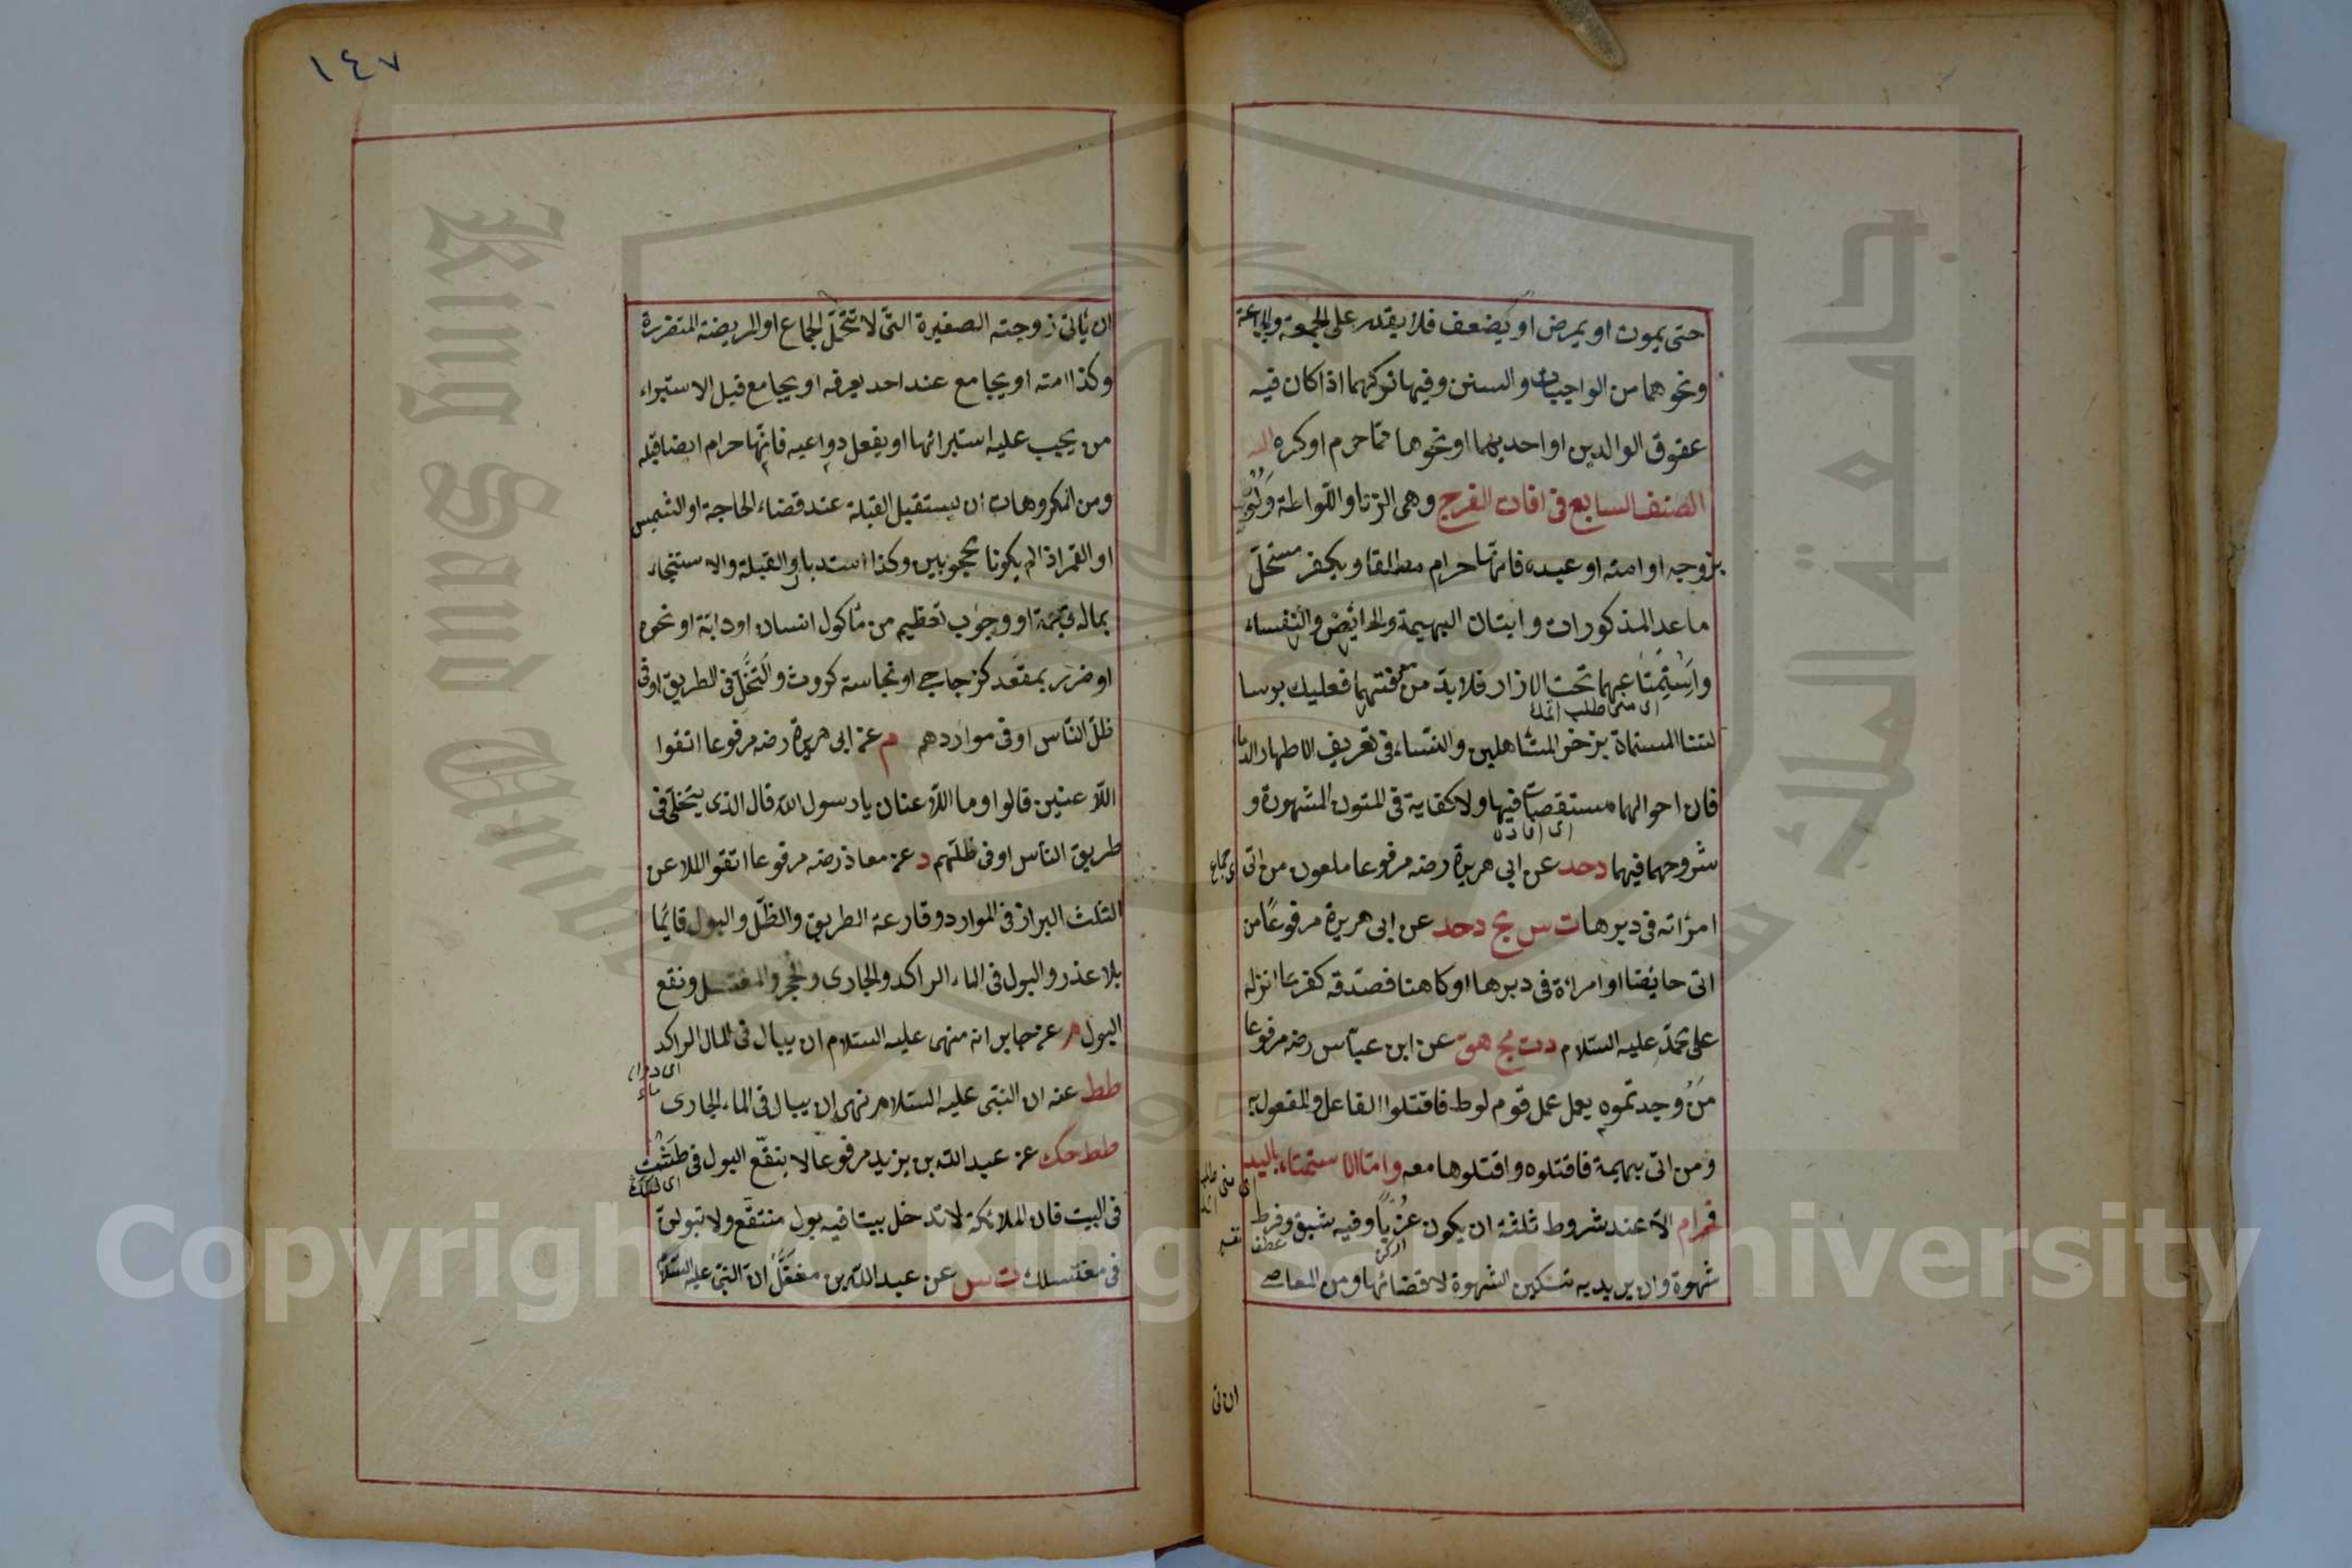 حتى يموت او يمرض او يضعف فلا يقدر على الجمعة والجماعة
ونحوهما من الواجبات والسنن وفيها تركهما اذا كان فيه
عقوق الوالدين او احديهما او نحوهما مما حرم او كره
الصنف السابع فى افات الفرج وهى الزنا واللواطة ولو
بزوجه او امته او عبده فانها حرام مطلقا ويكفر مستحل
ما عدا المذكورات واتيان البهيمة والحائض والنفساء
واستمتاعهما تحت الازار فلا بد من معرفتهما فعليك برسا
لتنا المسماة بزخر المتأهلين والنساء فى تعريف الاطهار والدما
فان احوالهما مستقصات فيها ولا كفاية فى المتون المشهورة و
شروحهما فيهما دحد عن ابى هريرة رضه مرفوعا ملعون من اتى
امرأته فى دبرها ت س مج دحد عن ابى هريرة مرفوعا من
اتى حائضا او امرأة فى دبرها او كاهنا فصدقه كفر بما انزل
على محمد عليه السلام دت مج هق عن ابن عباس رضه مرفوعا
من وجدتموه يعمل عمل قوم لوط فاقتلوا الفاعل والمفعول به
ومن اتى بهيمة فاقتلوه واقتلوها معه واما الاستمناء باليد
فحرام الا عند شروط ثلثة ان يكون عزبا وفيه شبق وفرط
شهوة وان يريد به تسكين الشهوة لا قضائها ومن المعاصى
ان تى
١٤٧
ان يأتى زوجته الصغيرة التى لا تتحمل الجماع او المريضة المتضررة
وكذا امته او يجامع عند احد يعرفه او يجامع قبل الاستبراء
من يجب عليه استبرائها او يفعل دواعيه فانها حرام ايضا قبله
ومن المكروهات ان يستقبل القبلة عند قضاء الحاجة او الشمس
او القمر اذا لم يكونا محجوبين وكذا استدبار القبلة والاستنجاء
بماله قيمة او وجوب تعظيم من مأكول انسان او دابة او نحوه
او ضرر بمقعد كزجاج او نجاسة كروث والتخلى فى الطريق او فى
ظل الناس او فى مواردهم م عن ابى هريرة رضه مرفوعا اتقوا
اللاعنين قالوا وما اللاعنان يا رسول الله قال الذى يتخلى فى
طريق الناس او فى ظلهم د عن معاذ رضه مرفوعا اتقوا الملاعن
الثلث البراز فى الموارد وقارعة الطريق والظل والبول قائما
بلا عذر والبول فى الماء الراكد والجارى والجحر والمغتسل ونقع
البول م عن جابر انه منهى عليه السلام ان يبال فى المال الراكد
طط عنه ان النبى عليه السلام نهى ان يبال فى الماء الجارى
طط حك عن عبد الله بن يزيد مرفوعا لا ينقع البول فى طشت
فى البيت فان الملائكة لا تدخل بيتا فيه بول منتقع ولا تبولن
فى مغتسلك ت س عن عبد الله بن مغفل ان النبى عليه السلام
Copyright © King Saud University
King Saud University
جامعة الملك